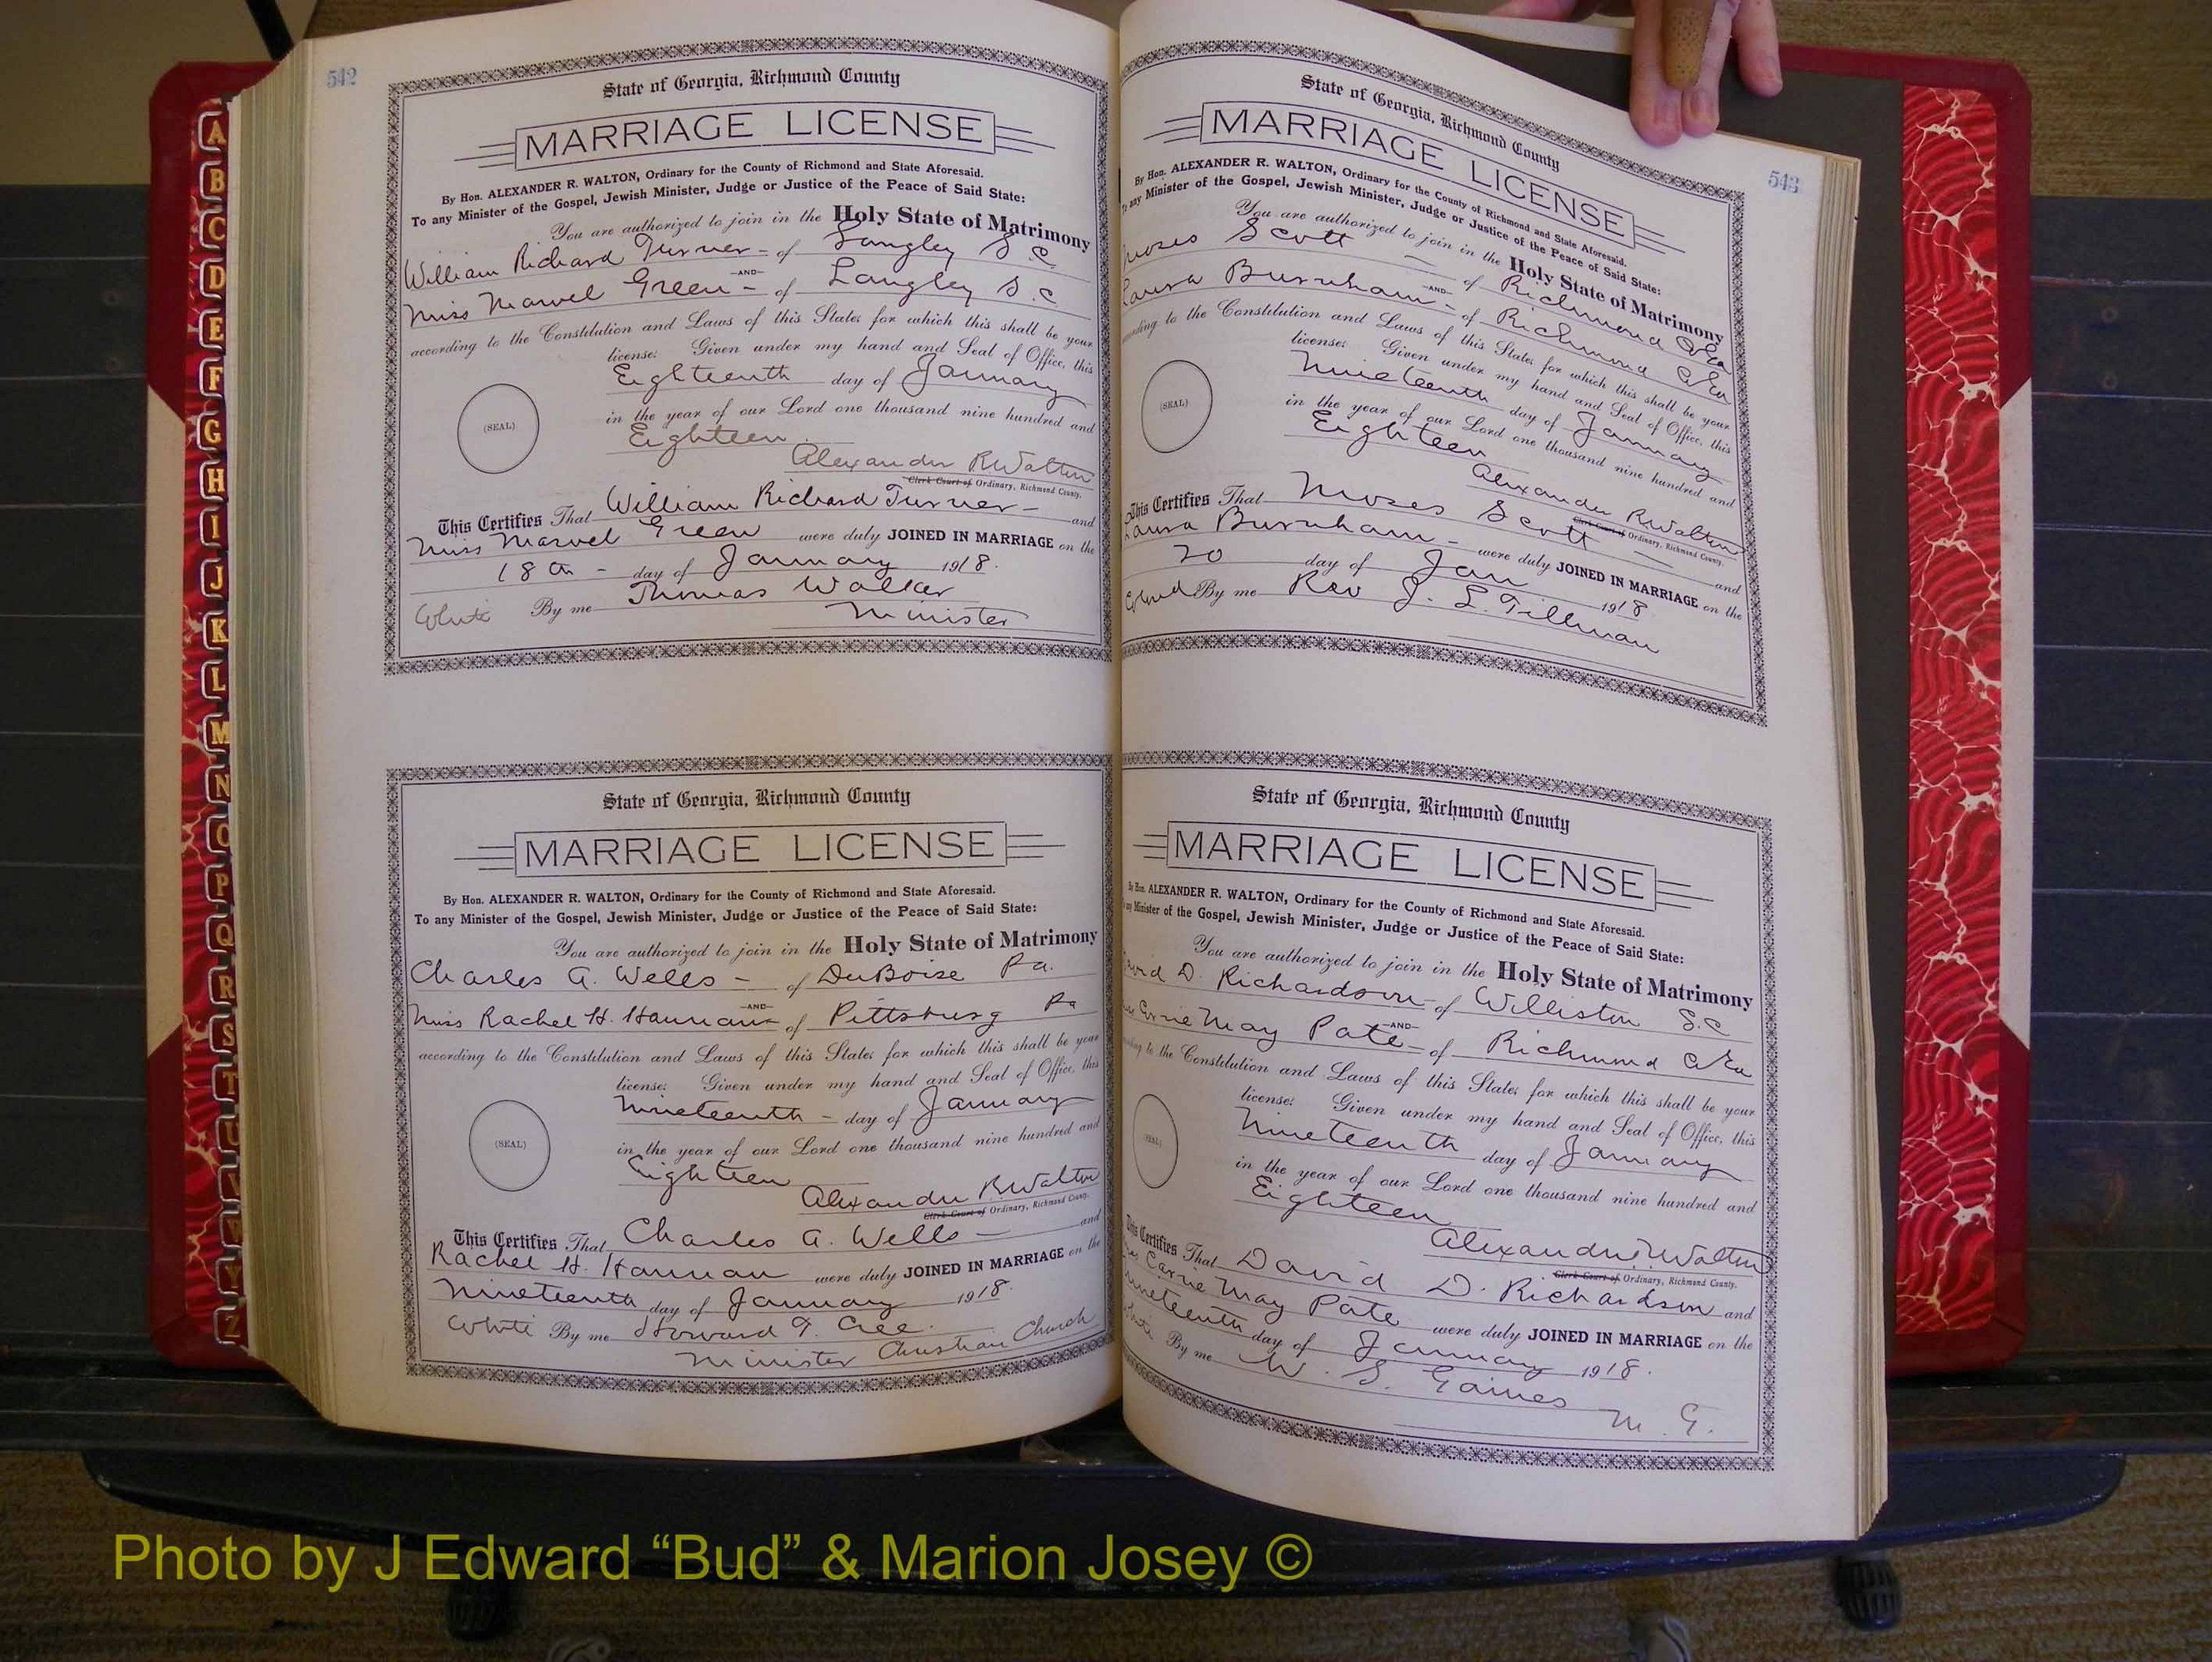 542
State of Georgia, Richmond County
MARRIAGE LICENSE
By Hon. ALEXANDER R. WALTON, Ordinary for the County of Richmond and State Aforesaid.
To any Minister of the Gospel, Jewish Minister, Judge or Justice of the Peace of Said State:
You are authorized to join in the Holy State of Matrimony
William Richard Turner - of Langley S. C.
-AND-
Miss Marvel Green - of Langley S. C.
according to the Constitution and Laws of this State; for which this shall be your
license: Given under my hand and Seal of Office, this
Eighteenth day of January
(SEAL)
in the year of our Lord one thousand nine hundred and
Eighteen
Alexander R Walton
Clerk Court of Ordinary, Richmond County.
This Certifies That William Richard Turner - and
Miss Marvel Green were duly JOINED IN MARRIAGE on the
18th - day of January 1918.
White By me Thomas Walker
Minister
State of Georgia, Richmond County
MARRIAGE LICENSE
By Hon. ALEXANDER R. WALTON, Ordinary for the County of Richmond and State Aforesaid.
To any Minister of the Gospel, Jewish Minister, Judge or Justice of the Peace of Said State:
You are authorized to join in the Holy State of Matrimony
Charles A. Wells - of DuBoise Pa.
-AND-
Miss Rachel H. Hannan of Pittsburg Pa
according to the Constitution and Laws of this State; for which this shall be your
license: Given under my hand and Seal of Office, this
Nineteenth - day of January
(SEAL)
in the year of our Lord one thousand nine hundred and
Eighteen
Alexander R Walton
Clerk Court of Ordinary, Richmond County.
This Certifies That Charles A. Wells - and
Rachel H. Hannan were duly JOINED IN MARRIAGE on the
Nineteenth day of January 1918.
White By me Howard T. Cree.
Minister Christian Church
543
State of Georgia, Richmond County
MARRIAGE LICENSE
By Hon. ALEXANDER R. WALTON, Ordinary for the County of Richmond and State Aforesaid.
To any Minister of the Gospel, Jewish Minister, Judge or Justice of the Peace of Said State:
You are authorized to join in the Holy State of Matrimony
Moses Scott - of Richmond Co Ga
-AND-
Laura Burnham - of Richmond Co Ga
according to the Constitution and Laws of this State; for which this shall be your
license: Given under my hand and Seal of Office, this
Nineteenth day of January
(SEAL)
in the year of our Lord one thousand nine hundred and
Eighteen
Alexander R Walton
Clerk Court of Ordinary, Richmond County.
This Certifies That Moses Scott and
Laura Burnham - were duly JOINED IN MARRIAGE on the
20 day of Jan 1918
Colored By me Rev J. L. Tillman
State of Georgia, Richmond County
MARRIAGE LICENSE
By Hon. ALEXANDER R. WALTON, Ordinary for the County of Richmond and State Aforesaid.
To any Minister of the Gospel, Jewish Minister, Judge or Justice of the Peace of Said State:
You are authorized to join in the Holy State of Matrimony
David D. Richardson - of Williston S. C
-AND-
Carrie May Pate - of Richmond Co Ga
to the Constitution and Laws of this State; for which this shall be your
license: Given under my hand and Seal of Office, this
Nineteenth day of January
(SEAL)
in the year of our Lord one thousand nine hundred and
Eighteen
Alexander R Walton
Clerk Court of Ordinary, Richmond County.
This Certifies That David D. Richardson and
Carrie May Pate were duly JOINED IN MARRIAGE on the
Nineteenth day of January 1918.
White By me W. S. Gaines
M. G.
A
B
C
D
E
F
G
H
I
J
K
L
M
N
O
P
Q
R
S
T
U
V
Y
Z
Photo by J Edward “Bud” & Marion Josey ©